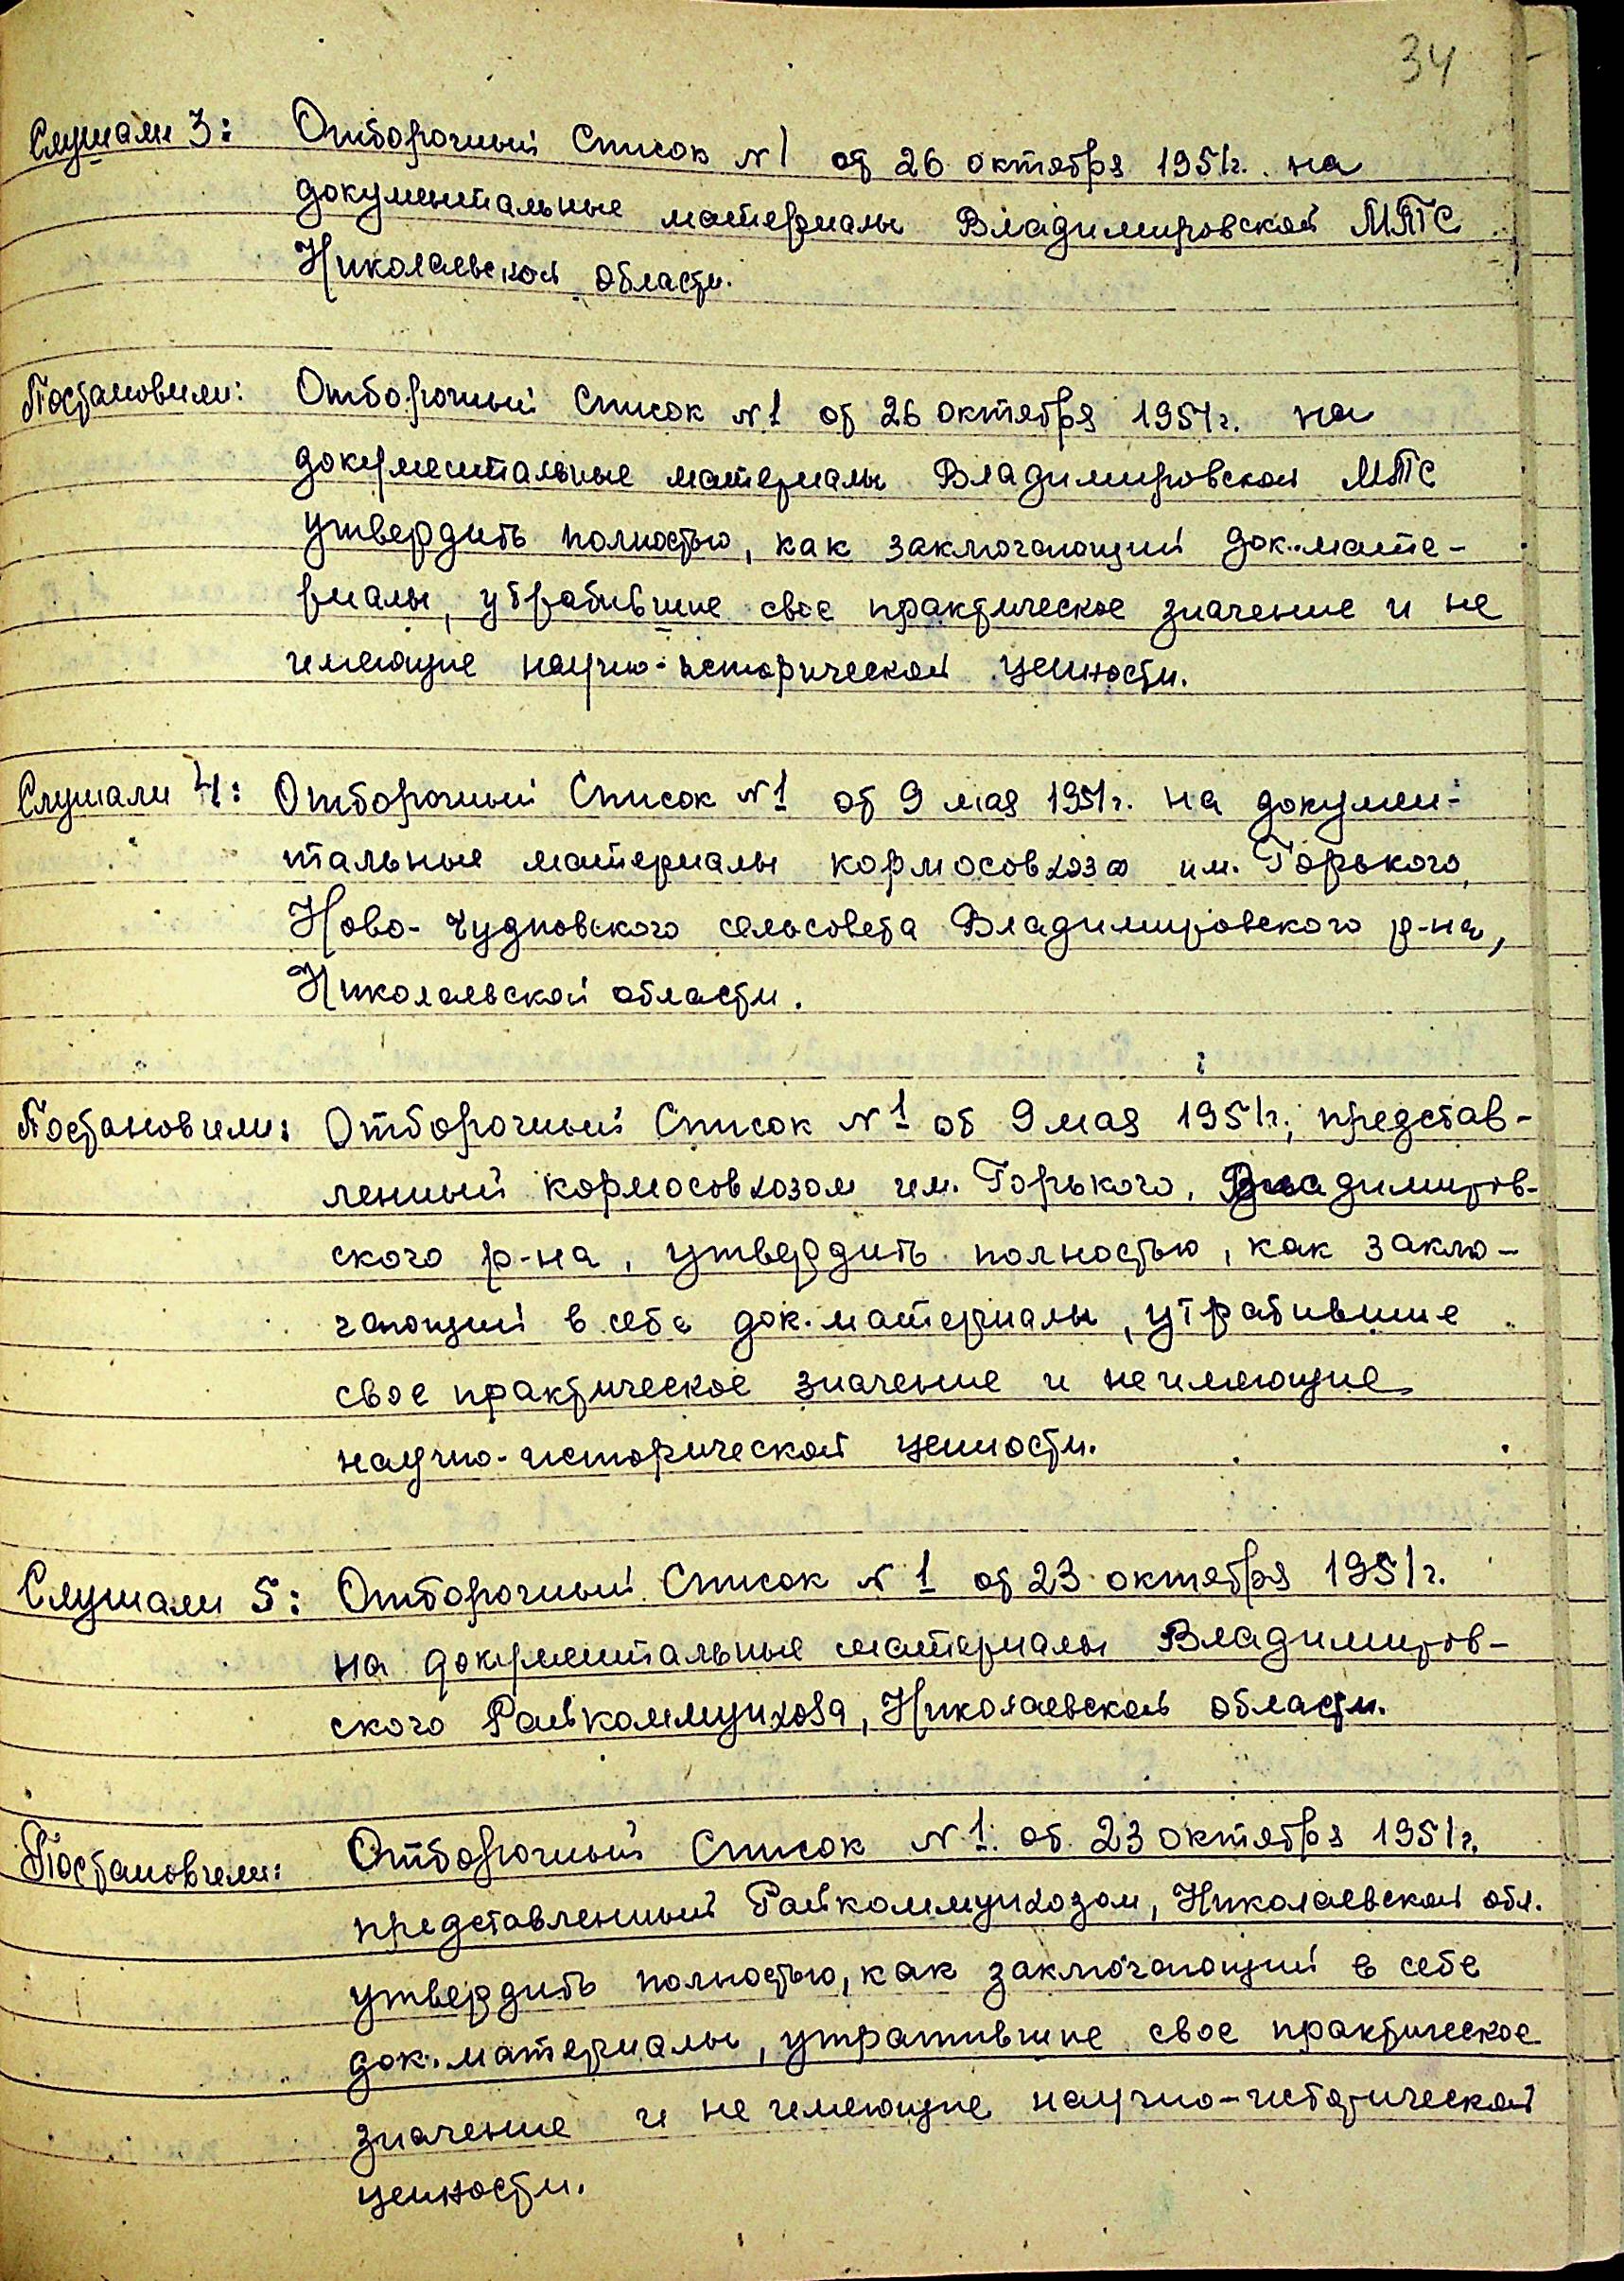 34
Слушали 3: Отборочный Список №1 от 26 октября 1951г. на
документальные материалы Владимировской МТС
Николаевской области.
Постановили: Отборочный Список №1 от 26 октября 1951г. на
документальные материалы Владимировской МТС
утвердить полностью, как заключающий док. мате-
риалы, утратившие свое практическое значение и не
имеющие научно-исторической ценности.
Слушали 4: Отборочный Список №1 от 9 мая 1951г. на докумен-
тальные материалы кормосовхоза им. Горького,
Ново-Чудновского сельсовета Владимировского р-на,
Николаевской области.
Постановили: Отборочный Список №1 от 9 мая 1951г., представ-
ленный кормосовхозом им. Горького, Владимиров-
ского р-на, утвердить полностью, как заклю-
чающий в себе док. материалы, утратившие
свое практическое значение и не имеющие
научно-исторической ценности.
Слушали 5: Отборочный Список №1 от 23 октября 1951г.
на документальные материалы Владимиров-
ского Райкоммунхоза, Николаевской области.
Постановили: Отборочный Список №1 от 23 октября 1951г.
представленный Райкоммунхозом, Николаевской обл.
утвердить полностью, как заключающий в себе
док. материалы, утратившие свое практическое
значение и не имеющие научно-исторической
ценности.